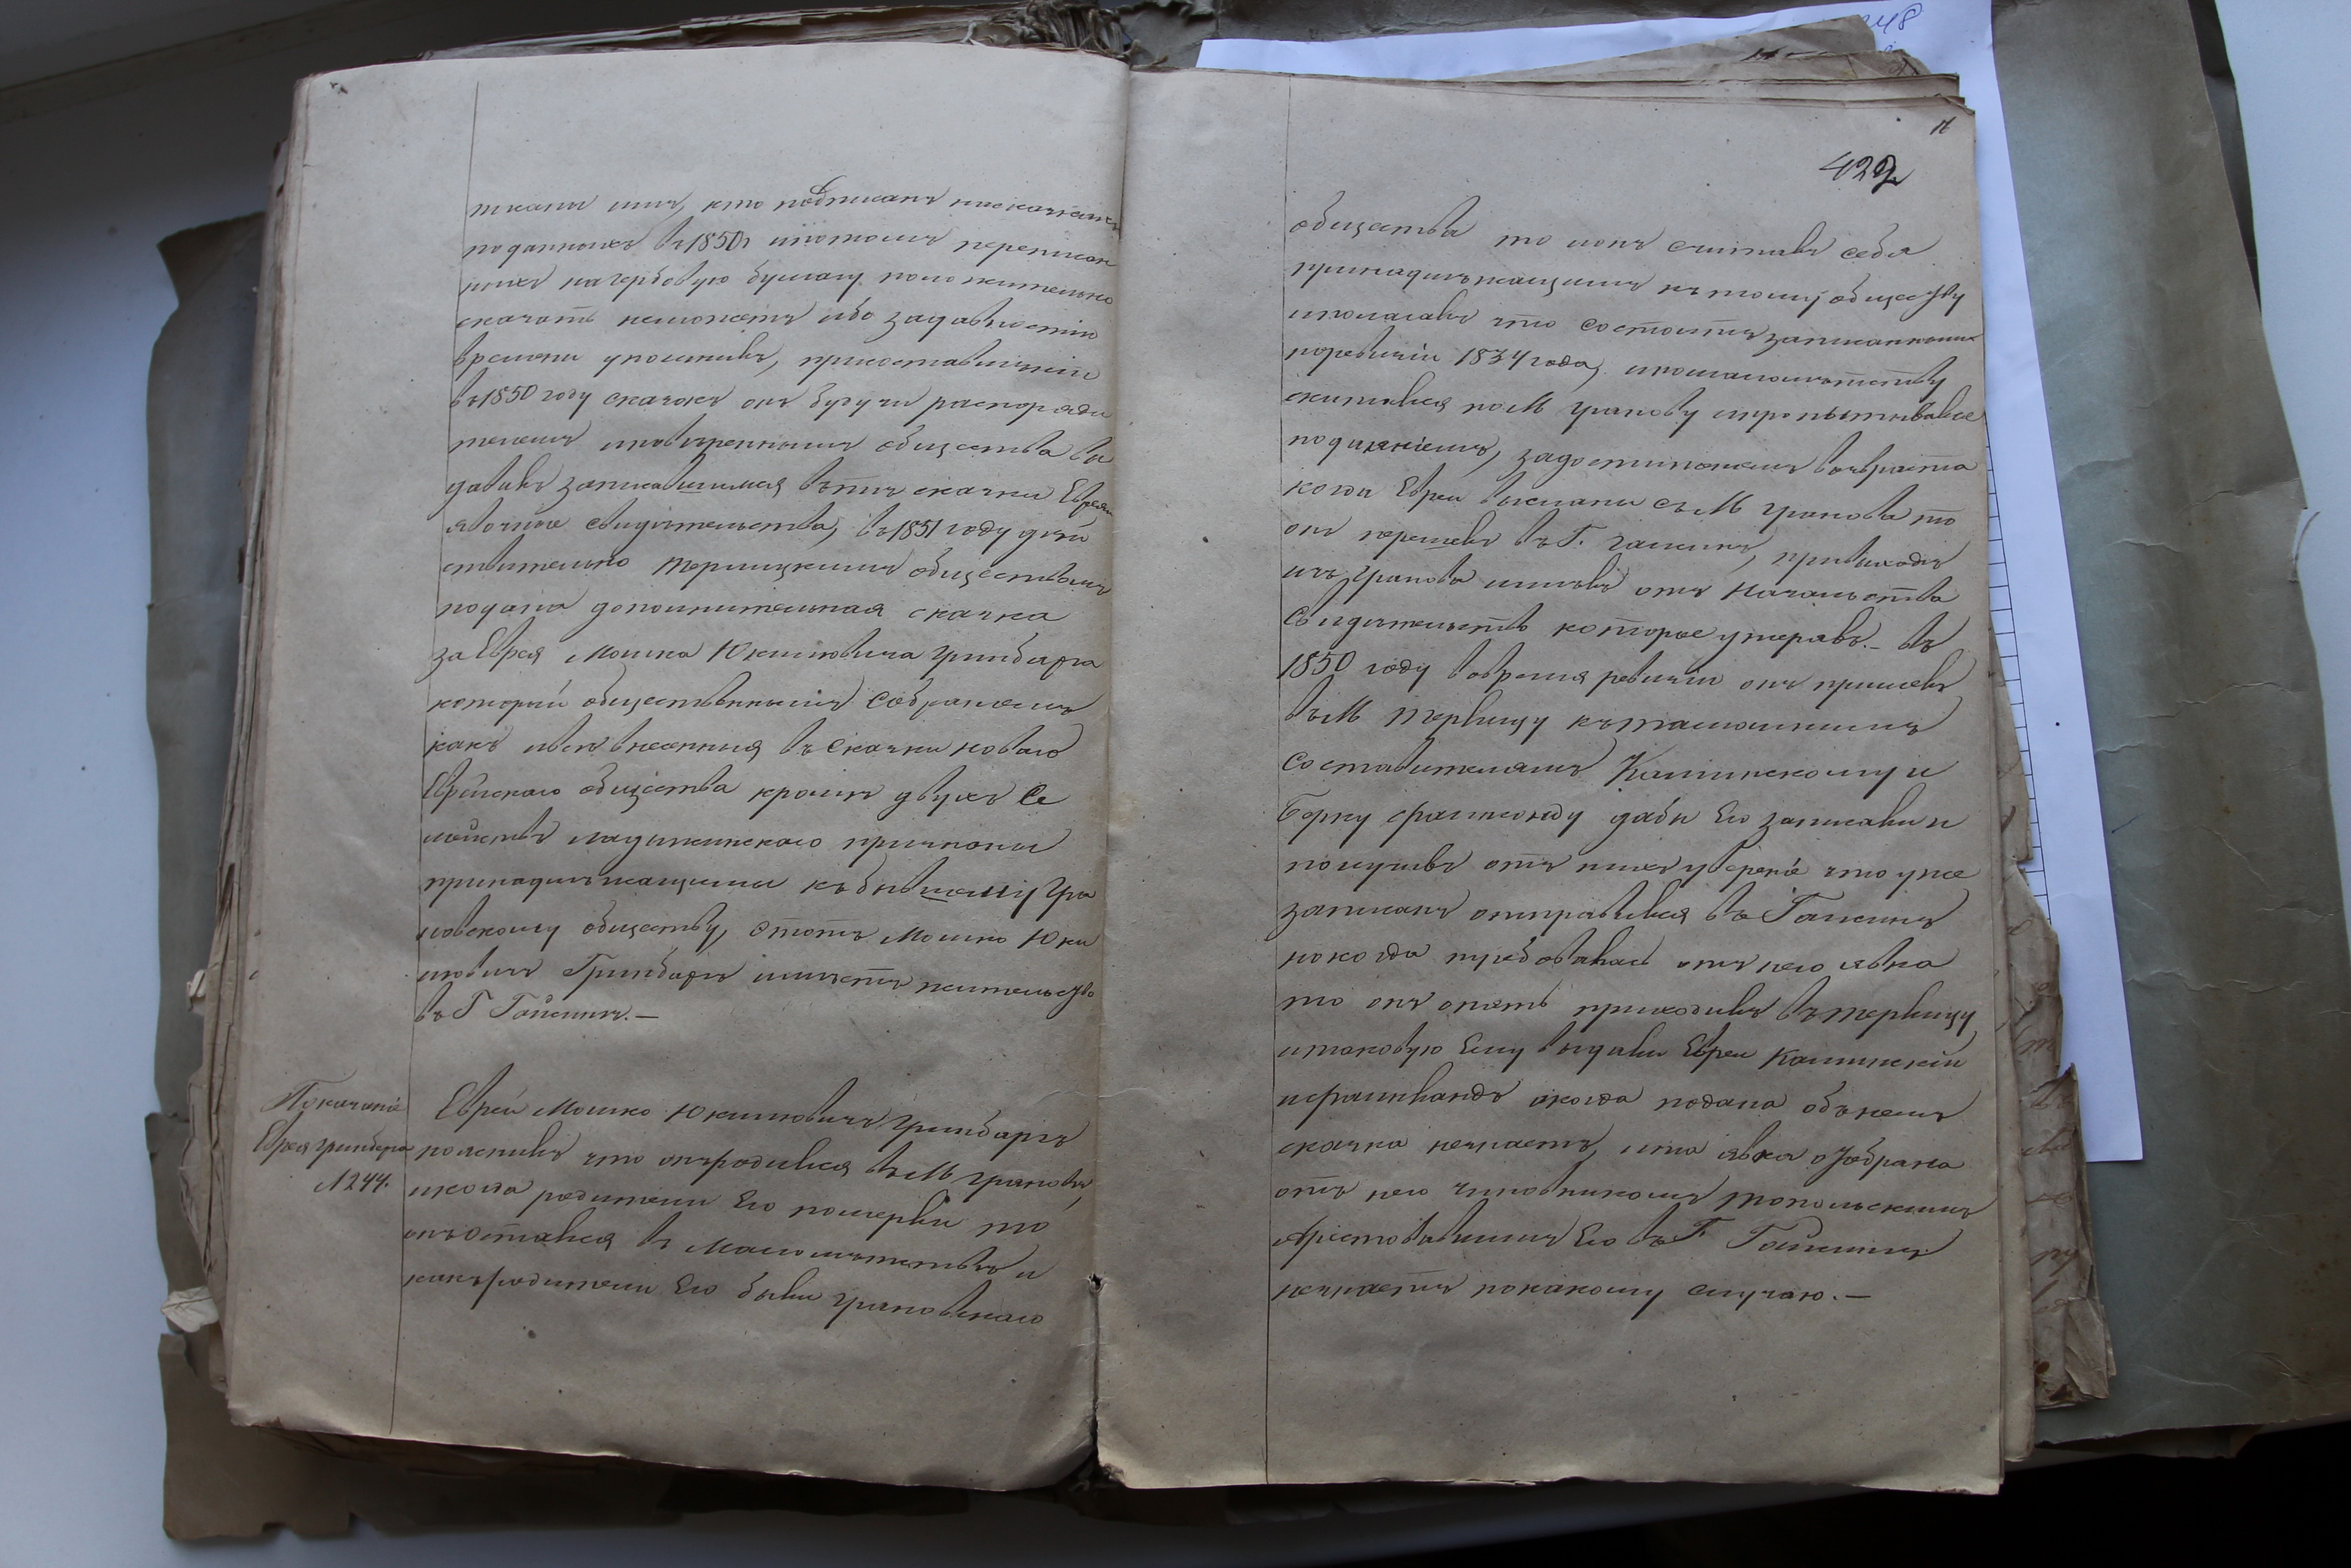 писаны ими, кто подписанъ на сказкахъ
поданныхъ въ 1850г и потомъ переписан
ныхъ на гербовую бумагу положительно
сказать неможетъ ибо задавностію
времени упомнилъ, при составленіи
въ 1850 году сказокъ онъ будучи распоряди
телемъ и повѣреннымъ общества вы
давалъ записавшимся вътѣ сказки Евреямъ
явочные свидѣтельства, въ 1851 году дѣй
ствительно Терлицкимъ обществомъ
подана дополнительная сказка
за Еврея Мошка Юкимовича Гринбарга
который общественнымъ собраніемъ
какъ и всѣ внесенныя въ сказки новаго
Еврейскаго общества кромѣ двухъ Се
мействъ ладыжинскаго признаны
принадлежащими къ бывшему Гра
новскому обществу, Этотъ Мошко Юки
мовичъ Гринбаргъ имѣетъ жительство
въ Г Гайсинѣ. —
Показаніе
Еврея Гринберга
№ 244.
Еврей Мошко Юкимовичъ Гринбаргъ
пояснилъ что онъ родился въ М Грановѣ,
и когда родители Его померли то
онъ остался въ малолѣтствѣ и
какъ родители Его были Грановскаго
422
общества то и онъ считалъ себя
принадлежащимъ къ тому обществу
и полагалъ что состоитъ записаннымъ
по ревизіи 1834 года, и по малолѣтству
скитался по М Гранову и пропитывался
подаяніемъ, за достиженіемъ возвраста
когда Евреи высланы съ М Гранова то
онъ перешелъ въ Г. Гайсинъ, при выходѣ
изъ Гранова имѣлъ отъ Начальства
Свидѣтельств которое утерялъ. — Въ
1850 году вовремя ревизіи онъ пришелъ
въ М Терлицу къ тамошнимъ
составителямъ Каминскому и
Борку Фраимонду дабы Его записали и
получилъ отъ нихъ увѣреніе что уже
записанъ отправился въ Гайсинъ
но когда требовалась отъ него явка
то онъ опять приходилъ въ Терлицу
и таковую Ему выдали Евреи Каминскій
и Фраимондъ а когда подана объ немъ
сказка незнаетъ, и та явка отобрана
отъ него Чиновникомъ Топольскимъ
Арестовавшимъ Его въ Г. Гайсинѣ
незнаетъ по какому случаю. —